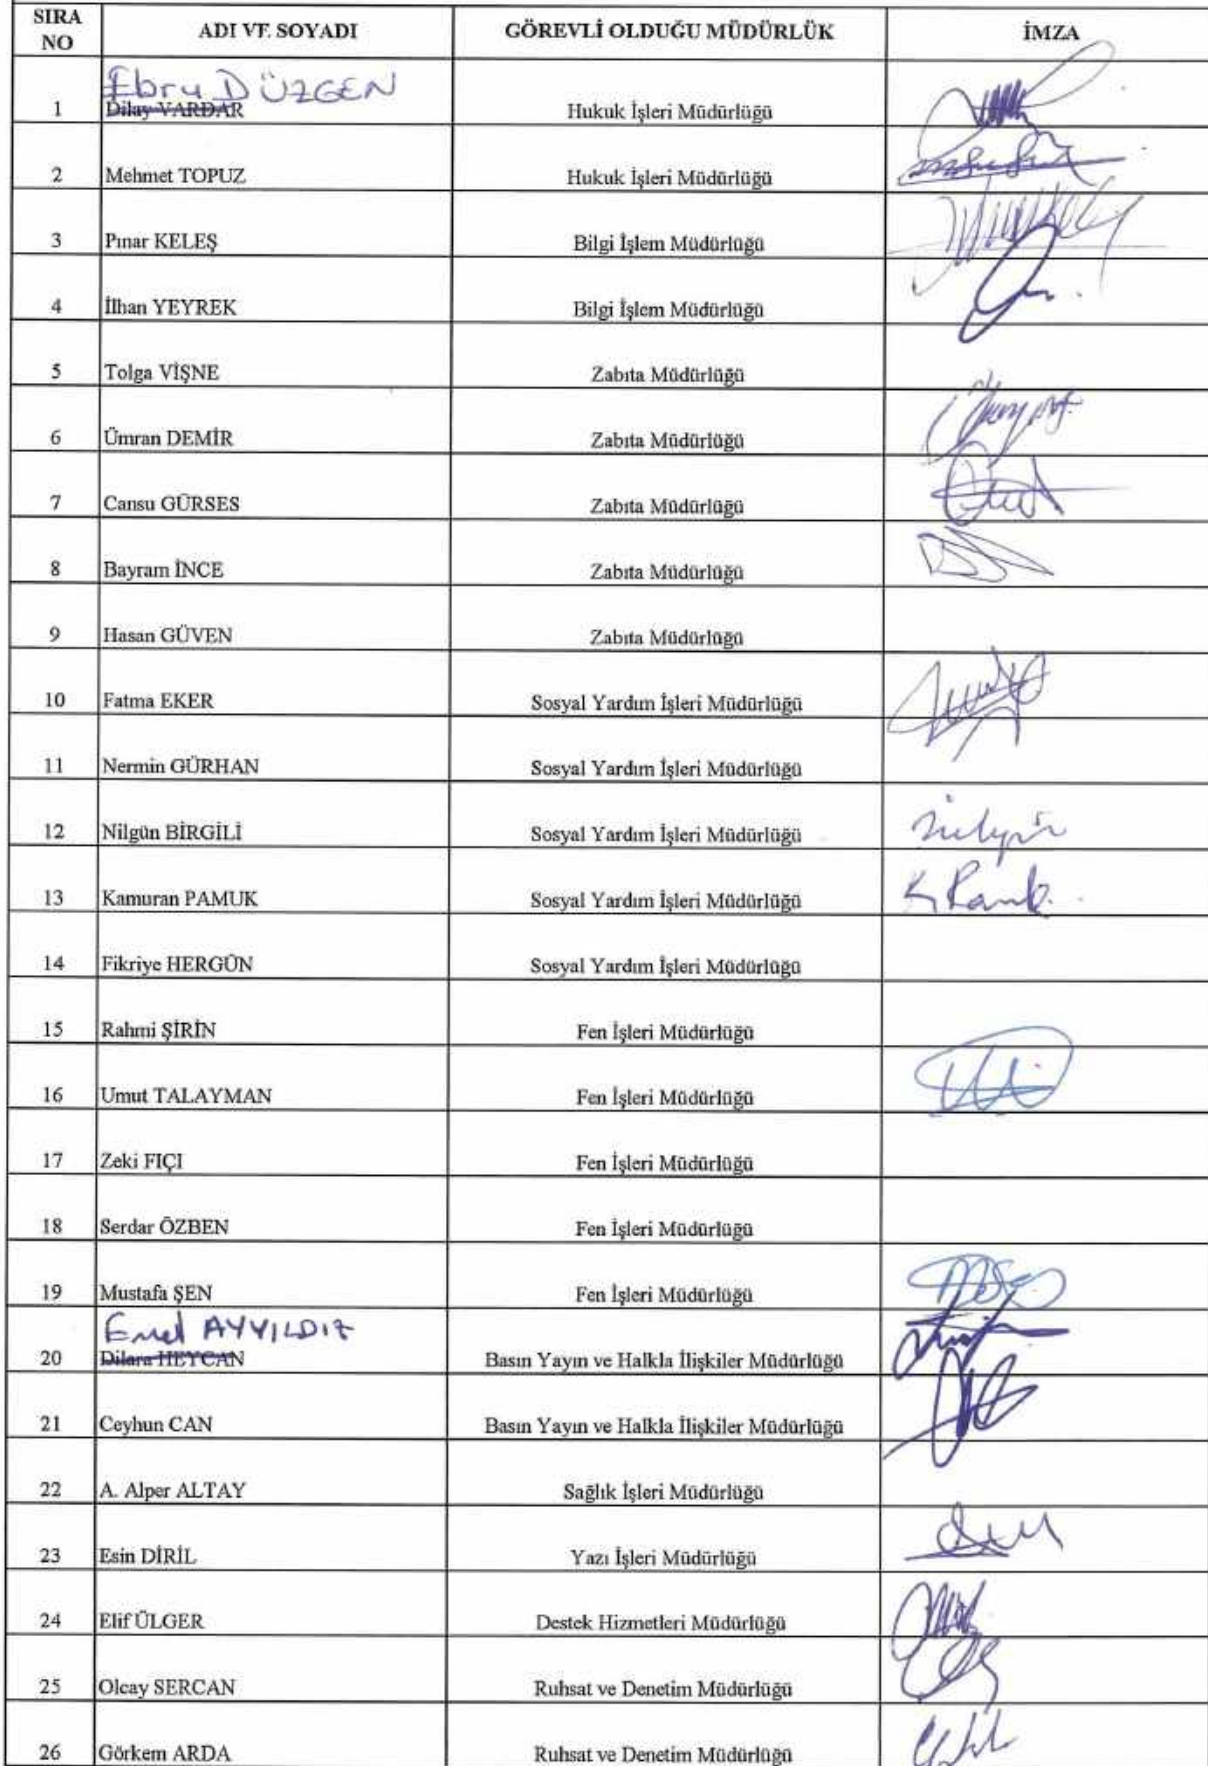 SIRA NO ADI VE SOYADI GÖREVLİ OLDUĞU MÜDÜRLÜK İMZA
Ebru DÜZGEN
1 Dilay VARDAR Hukuk İşleri Müdürlüğü
2 Mehmet TOPUZ Hukuk İşleri Müdürlüğü
3 Pınar KELEŞ Bilgi İşlem Müdürlüğü
4 İlhan YEYREK Bilgi İşlem Müdürlüğü
5 Tolga VİŞNE Zabıta Müdürlüğü
6 Ümran DEMİR Zabıta Müdürlüğü
7 Cansu GÜRSES Zabıta Müdürlüğü
8 Bayram İNCE Zabıta Müdürlüğü
9 Hasan GÜVEN Zabıta Müdürlüğü
10 Fatma EKER Sosyal Yardım İşleri Müdürlüğü
11 Nermin GÜRHAN Sosyal Yardım İşleri Müdürlüğü
12 Nilgün BİRGİLİ Sosyal Yardım İşleri Müdürlüğü
13 Kamuran PAMUK Sosyal Yardım İşleri Müdürlüğü
14 Fikriye HERGÜN Sosyal Yardım İşleri Müdürlüğü
15 Rahmi ŞİRİN Fen İşleri Müdürlüğü
16 Umut TALAYMAN Fen İşleri Müdürlüğü
17 Zeki FIÇI Fen İşleri Müdürlüğü
18 Serdar ÖZBEN Fen İşleri Müdürlüğü
19 Mustafa ŞEN Fen İşleri Müdürlüğü
AYYILDIZ
20 Dilara HEYCAN Basın Yayın ve Halkla İlişkiler Müdürlüğü
21 Ceyhun CAN Basın Yayın ve Halkla İlişkiler Müdürlüğü
22 A. Alper ALTAY Sağlık İşleri Müdürlüğü
23 Esin DİRİL Yazı İşleri Müdürlüğü
24 Elif ÜLGER Destek Hizmetleri Müdürlüğü
25 Olcay SERCAN Ruhsat ve Denetim Müdürlüğü
26 Görkem ARDA Ruhsat ve Denetim Müdürlüğü